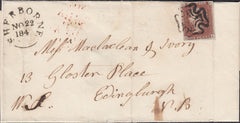 SHERBORNE
NO 22
184
Messrs Maclachlan & Ivory
13 Gloster Place
Edinburgh
N.B.